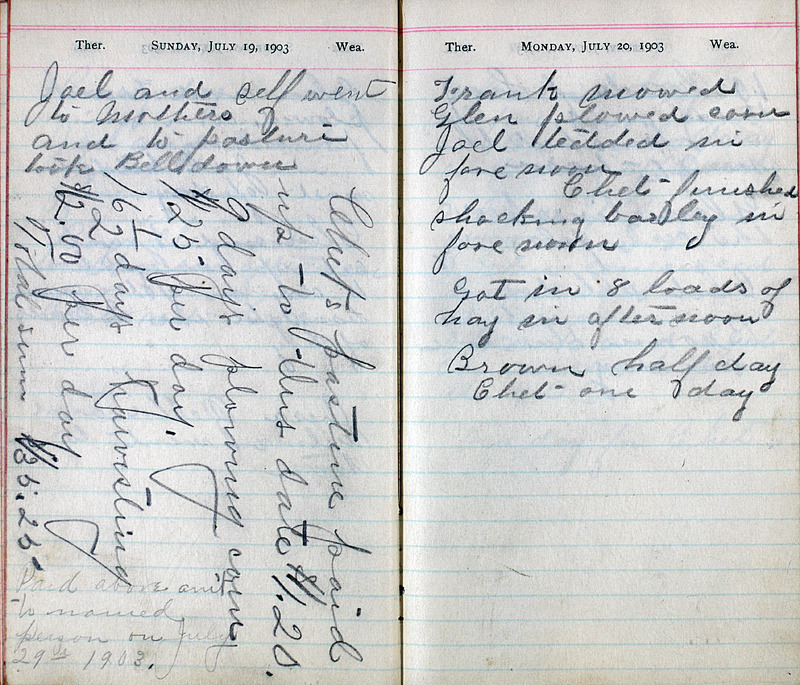 Ther. SUNDAY, JULY 19, 1903 Wea.
Joel and self went
to Mothers
and to pasture
took Bell down
Chet's pasture paid
up to this date $1.25.
9 days plowing corn
$1.25 per day.
16 1/2 days harvesting
$2.00 per day
Total sum $35.25
Paid above amt
to named
person on July
29th 1903.
Ther. MONDAY, JULY 20, 1903 Wea.
Frank mowed
Glen plowed corn
Joel tedded in
fore noon
Chet finished
shocking barley in
fore noon
Got in 8 loads of
hay in afternoon
Brown half day
Chet one day